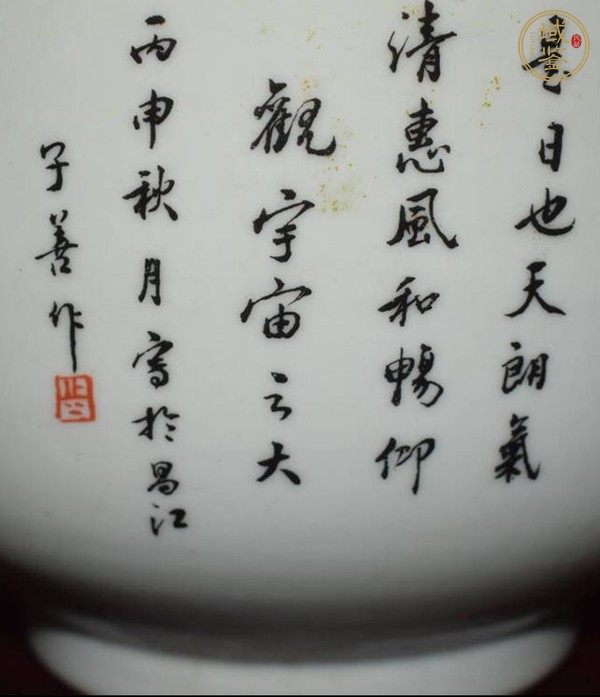 是日也天朗氣
清惠風和暢仰
觀宇宙之大
丙申秋月寫於昌江
子善作
域鉴